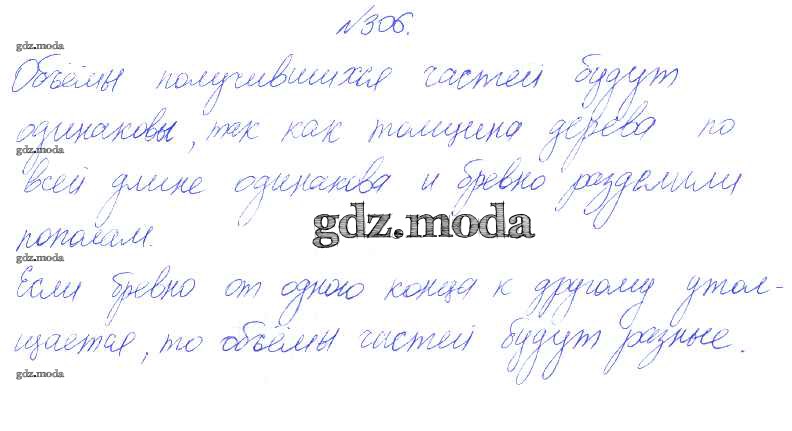 №306.
gdz.moda
Объёмы получившихся частей будут
одинаковы, так как толщина дерева по
gdz.moda
всей длине одинакова и бревно разделили
gdz.moda
пополам.
gdz.moda
Если бревно от одного конца к другому утол-
щается, то объёмы частей будут разные.
gdz.moda